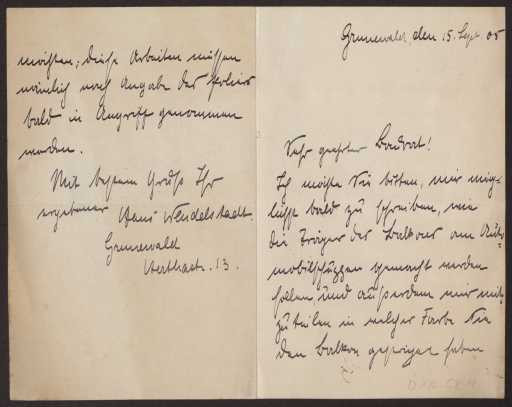 Grunewald, den 15. Sept. 05
Sehr geehrter Baurat!
Ich möchte Sie bitten, mir mög-
lichst bald zu schreiben, wie
die Träger des Balkons am Auto-
mobilschuppen gemacht werden
sollen und außerdem mir mit-
zuteilen in welcher Farbe Sie
den Balkon gestrichen haben
möchten; diese Arbeiten müssen
nämlich nach Angabe des
bald in Angriff genommen
werden.
Mit bestem Gruß Ihr
ergebener Hans Wendelstadt.
Grunewald
Herthastr. 13.